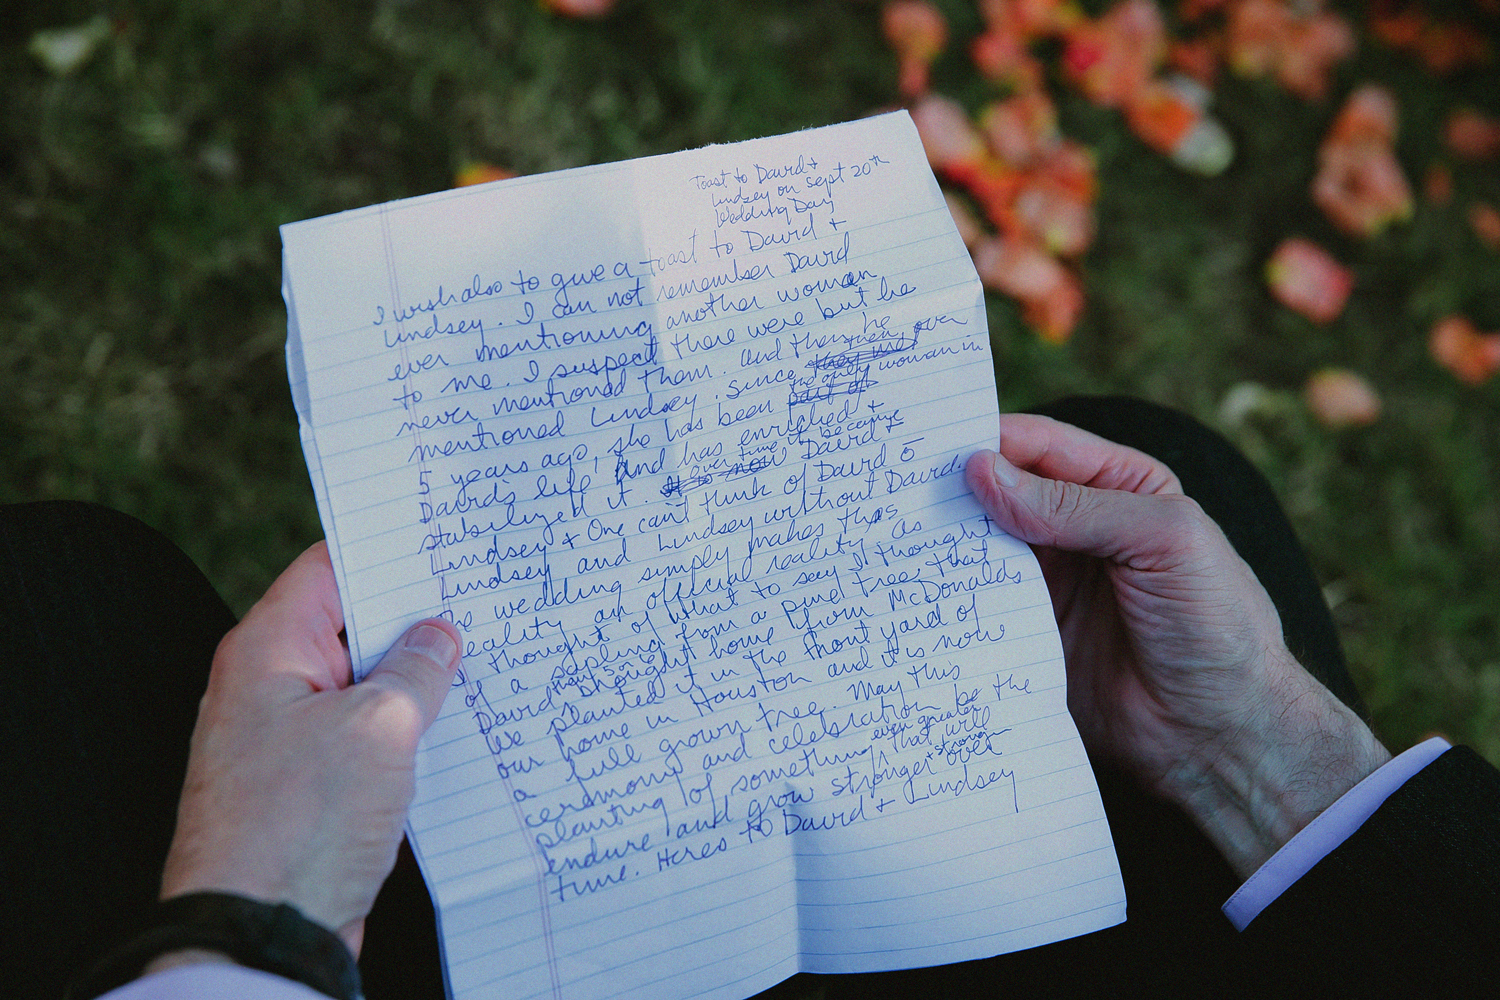 Toast to David +
Lindsey on Sept 20th
Wedding Day
I wish also to give a toast to David +
Lindsey. I can not remember David
ever mentioning another woman
to me. I suspect there were but he
never mentioned them. and then he
mentioned Lindsey. Since then over
5 years ago, she has been the only woman in
David's life, and has enriched +
stabilized it. over time it became David +
Lindsey + One can't think of David c̄
Lindsey and Lindsey without David.
The wedding simply makes this
reality an official reality. As
I thought of what to say I thought
of a sapling from a pine tree, that
David brought home from McDonalds
We planted it in the front yard of
our home in Houston and it is now
a full grown tree. May this
ceremony and celebration be the
planting of something even greater that will
endure and grow stronger + stronger over
time. Heres to David + Lindsey